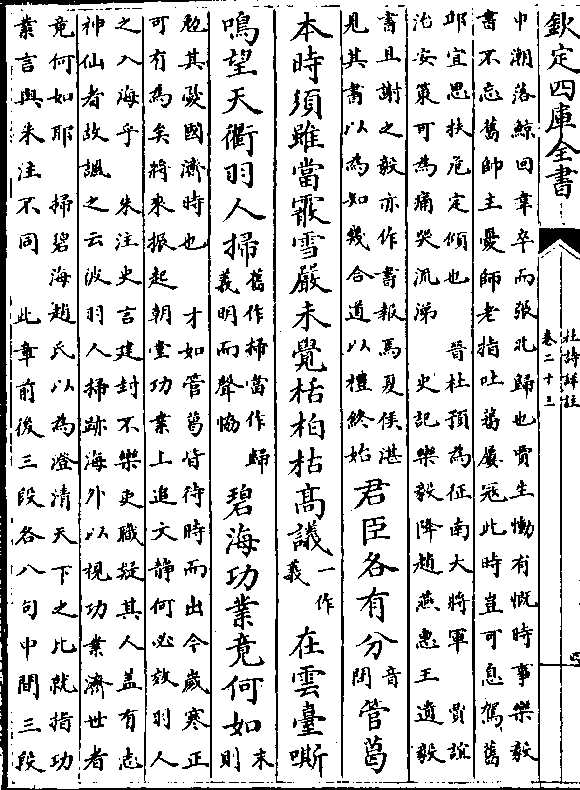 欽定四庫全書
杜詩詳註
卷二十三
四
中潮落鯨回韋卒而張北歸也賈生慟有慨時事樂毅
書不忘舊師主憂師老指吐蕃屢冦此時豈可息駕舊
邱宜思扶危定傾也　晉杜預為征南大將軍　賈誼
治安策可為痛哭流涕　史記樂毅降趙燕惠王遺毅
書且謝之毅亦作書報焉夏侯湛
見其書以為知幾合道以禮終始
君臣各有分音問管葛
本時須雖當霰雪嚴未覺栝柏枯高議一作義在雲臺嘶
鳴望天衢羽人掃舊作掃當作歸義明而聲恊碧海功業竟何如末則
勉其憂國濟時也　才如管葛皆待時而出今歲寒正
可有為矣將來振起朝堂功業上追文靜何必效羽人
之入海乎　朱注史言建封不樂吏職疑其人盖有志
神仙者故諷之云彼羽人掃跡海外以視功業濟世者
竟何如耶　掃碧海趙氏以為澄清天下之比就指功
業言與朱注不同　此章前後三段各八句中間三段